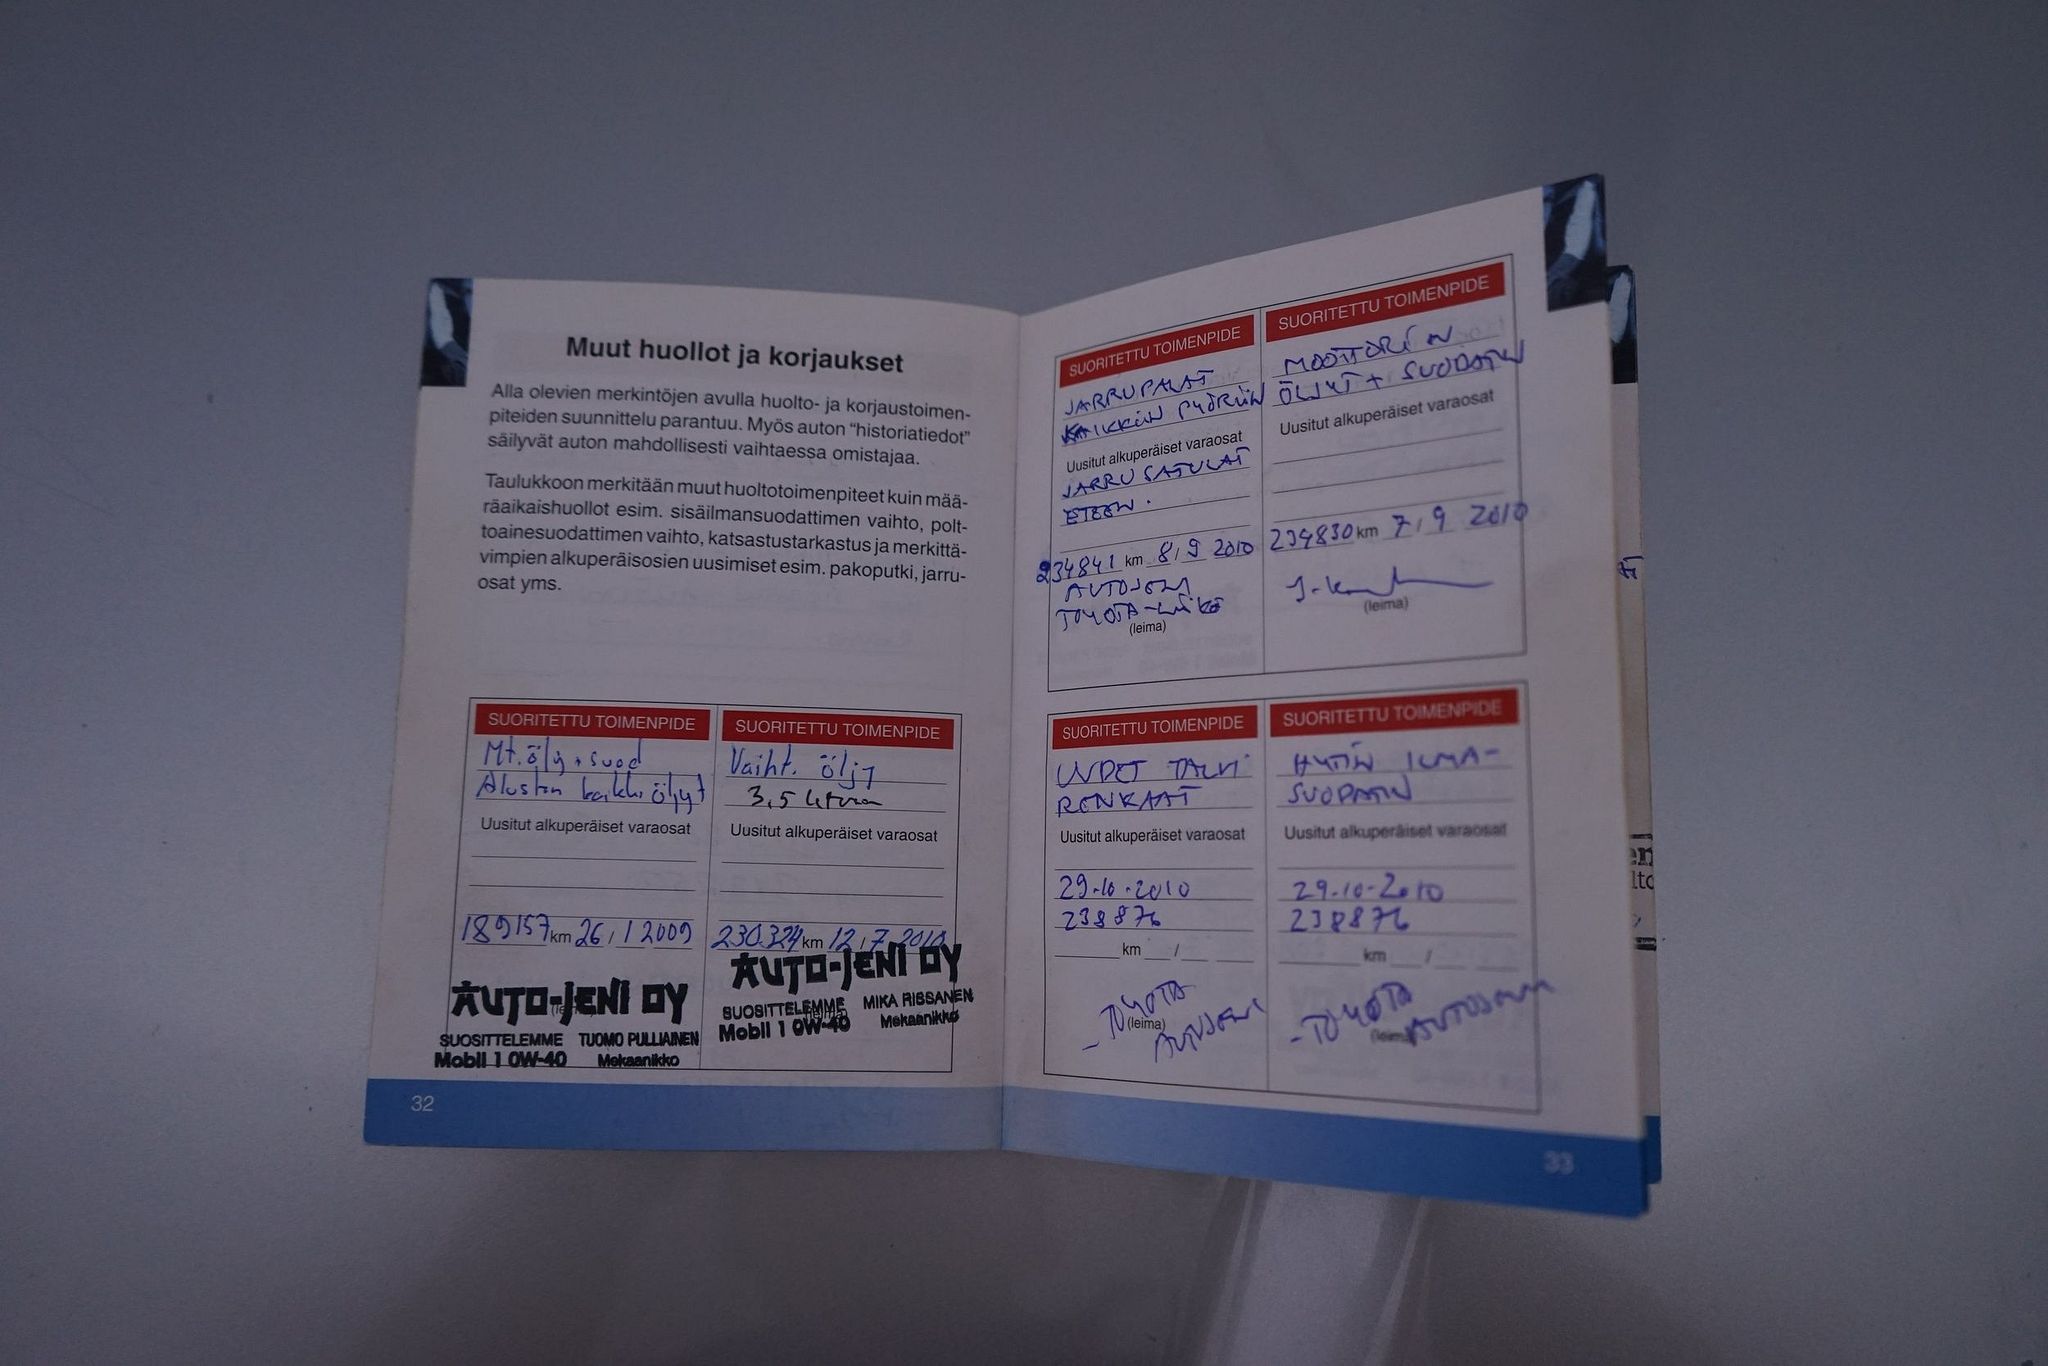 Muut huollot ja korjaukset
Alla olevien merkintöjen avulla huolto- ja korjaustoimen-
piteiden suunnittelu parantuu. Myös auton "historiatiedot"
säilyvät auton mahdollisesti vaihtaessa omistajaa.
Taulukkoon merkitään muut huoltotoimenpiteet kuin mää-
räaikaishuollot esim. sisäilmansuodattimen vaihto, polt-
toainesuodattimen vaihto, katsastustarkastus ja merkittä-
vimpien alkuperäisosien uusimiset esim. pakoputki, jarru-
osat yms.
SUORITETTU TOIMENPIDE
Mt. öljy + suod
Alustan kaikki öljyt
Uusitut alkuperäiset varaosat
189157 km 26 / 1 2009
AUTO-JENI OY
SUOSITTELEMME TUOMO PULLIAINEN
Mobil 1 0W-40 Mekaanikko
SUORITETTU TOIMENPIDE
Vaiht. öljy
3,5 litraa
Uusitut alkuperäiset varaosat
230.324 km 12 / 7 2010
AUTO-JENI OY
SUOSITTELEMME MIKA RISSANEN
Mobil 1 0W-40 Mekaanikko
32
SUORITETTU TOIMENPIDE
JARRUPALAT
KAIKKIIN PYÖRIIN
Uusitut alkuperäiset varaosat
JARRUSATULAT
ETEEN.
234841 km 8 / 9 2010
AUTOJENI
TOYOTA-LIIKE
(leima)
SUORITETTU TOIMENPIDE
MOOTTORIN
ÖLJYT + SUODATIN
Uusitut alkuperäiset varaosat
234830 km 7 / 9 2010
(leima)
SUORITETTU TOIMENPIDE
UUDET TALVI
RENKAAT
Uusitut alkuperäiset varaosat
29.10.2010
238876
km /
- TOYOTA
(leima)
AUTOJENI
SUORITETTU TOIMENPIDE
HYTIN ILMA-
SUODATIN
Uusitut alkuperäiset varaosat
29.10-2010
238876
km /
- TOYOTA
(leima)
AUTOJENI
33